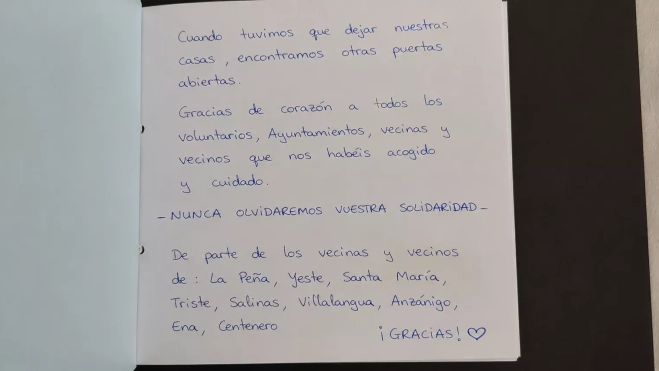 Cuando tuvimos que dejar nuestras
casas, encontramos otras puertas
abiertas.
Gracias de corazón a todos los
voluntarios, Ayuntamientos, vecinas y
vecinos que nos habéis acogido
y cuidado.
- NUNCA OLVIDAREMOS VUESTRA SOLIDARIDAD -
De parte de los vecinas y vecinos
de: La Peña, Yeste, Santa María,
Triste, Salinas, Villalangua, Anzánigo,
Ena, Centenero
¡GRACIAS! ♡